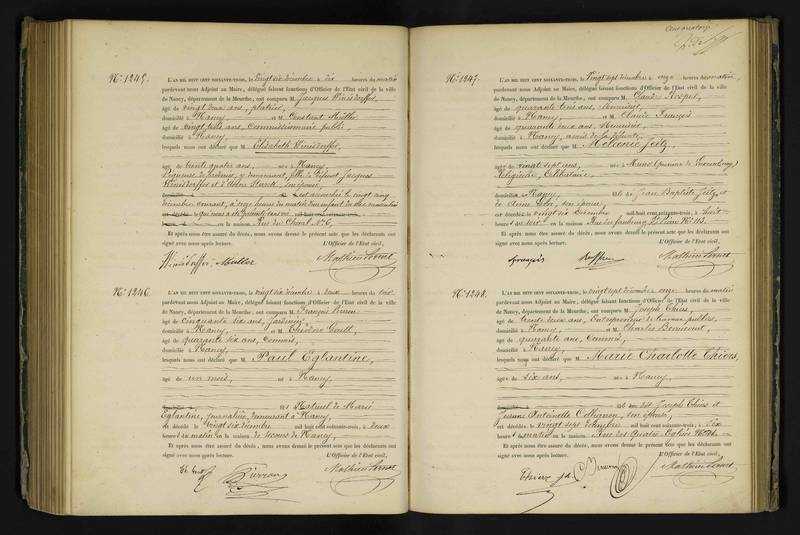 No. 1245. L'AN MIL HUIT CENT SOIXANTE-TROIS, le vingt six décembre à dix heures du matin
pardevant nous Adjoint au Maire, délégué faisant fonctions d'Officier de l'Etat civil de la ville
de Nancy, département de la Meurthe, ont comparu M. Jacques
âgé de vingt deux ans, platrier,
domicilié à Nancy, et M. Constant Müller
âgé de ans, Commissionnaire public,
domicilié à Nancy,
lesquels nous ont déclaré que M. Elisabeth
âgé de trente quatre ans, né à Nancy,
y demeurant, fille de défunt Jacques
et d' son épouse,
est accouchée le vingt cinq
décembre courant, à onze heures du matin d'un enfant du sexe masculin
qui nous a été présenté sans vie
en la maison Rue du Cheval No. 6,
Et après nous être assuré du décès, nous avons dressé le présent acte que les déclarants ont
signé avec nous après lecture. L'Officier de l'Etat civil,
Muller
No. 1246. L'AN MIL HUIT CENT SOIXANTE-TROIS, le vingt six décembre à deux heures du soir
pardevant nous Adjoint au Maire, délégué faisant fonctions d'Officier de l'Etat civil de la ville
de Nancy, département de la Meurthe, ont comparu M. François
âgé de cinquante six ans, Jardinier,
domicilié à Nancy, et M. Théodore
âgé de quarante six ans, Commis,
domicilié à Nancy,
lesquels nous ont déclaré que M. Paul Eglantine,
âgé de un mois, né à Nancy,
fils Naturel de Marie
Eglantine, journalière, demeurant à Nancy,
est décédé le vingt six décembre mil huit cent soixante-trois, à deux
heures du matin en la maison de secours de Nancy,
Et après nous être assuré du décès, nous avons dressé le présent acte que les déclarants ont
signé avec nous après lecture. L'Officier de l'Etat civil,
No. 1247. L'AN MIL HUIT CENT SOIXANTE-TROIS, le vingt sept décembre à onze heures du matin,
pardevant nous Adjoint au Maire, délégué faisant fonctions d'Officier de l'Etat civil de la ville
de Nancy, département de la Meurthe, ont comparu M. Claude
âgé de quarante trois ans, Menuisier,
domicilié à Nancy, et M. Claude François
âgé de quarante deux ans, Menuisier,
domicilié à Nancy, amis de la défunte,
lesquels nous ont déclaré que M. Mélanie Jeitz,
âgé de vingt sept ans, né à
Religieuse, Célibataire,
à Nancy, fille de Jean Baptiste Jeitz, et
de Anne son épouse,
est décédé le vingt six décembre mil huit cent soixante-trois, à
heures du soir en la maison Rue du faubourg St. Jean No. 113.
Et après nous être assuré du décès, nous avons dressé le présent acte que les déclarants ont
signé avec nous après lecture. L'Officier de l'Etat civil,
françois
No. 1248. L'AN MIL HUIT CENT SOIXANTE-TROIS, le vingt sept décembre à onze heures du matin
pardevant nous Adjoint au Maire, délégué faisant fonctions d'Officier de l'Etat civil de la ville
de Nancy, département de la Meurthe, ont comparu M. Joseph
âgé de trente deux ans, Entrepreneur de travaux publics,
domicilié à Nancy, et M. Charles
âgé de quarante ans, Commis,
domicilié à Nancy,
lesquels nous ont déclaré que M. Marie Charlotte
âgé de six ans, né à Nancy,
fille dudit Joseph et
Antoinette Collignon, son épouse,
est décédée le vingt sept décembre mil huit cent soixante-trois, à six
heures du matin en la maison Rue des Quatre Eglises
Et après nous être assuré du décès, nous avons dressé le présent acte que les déclarants ont
signé avec nous après lecture. L'Officier de l'Etat civil,